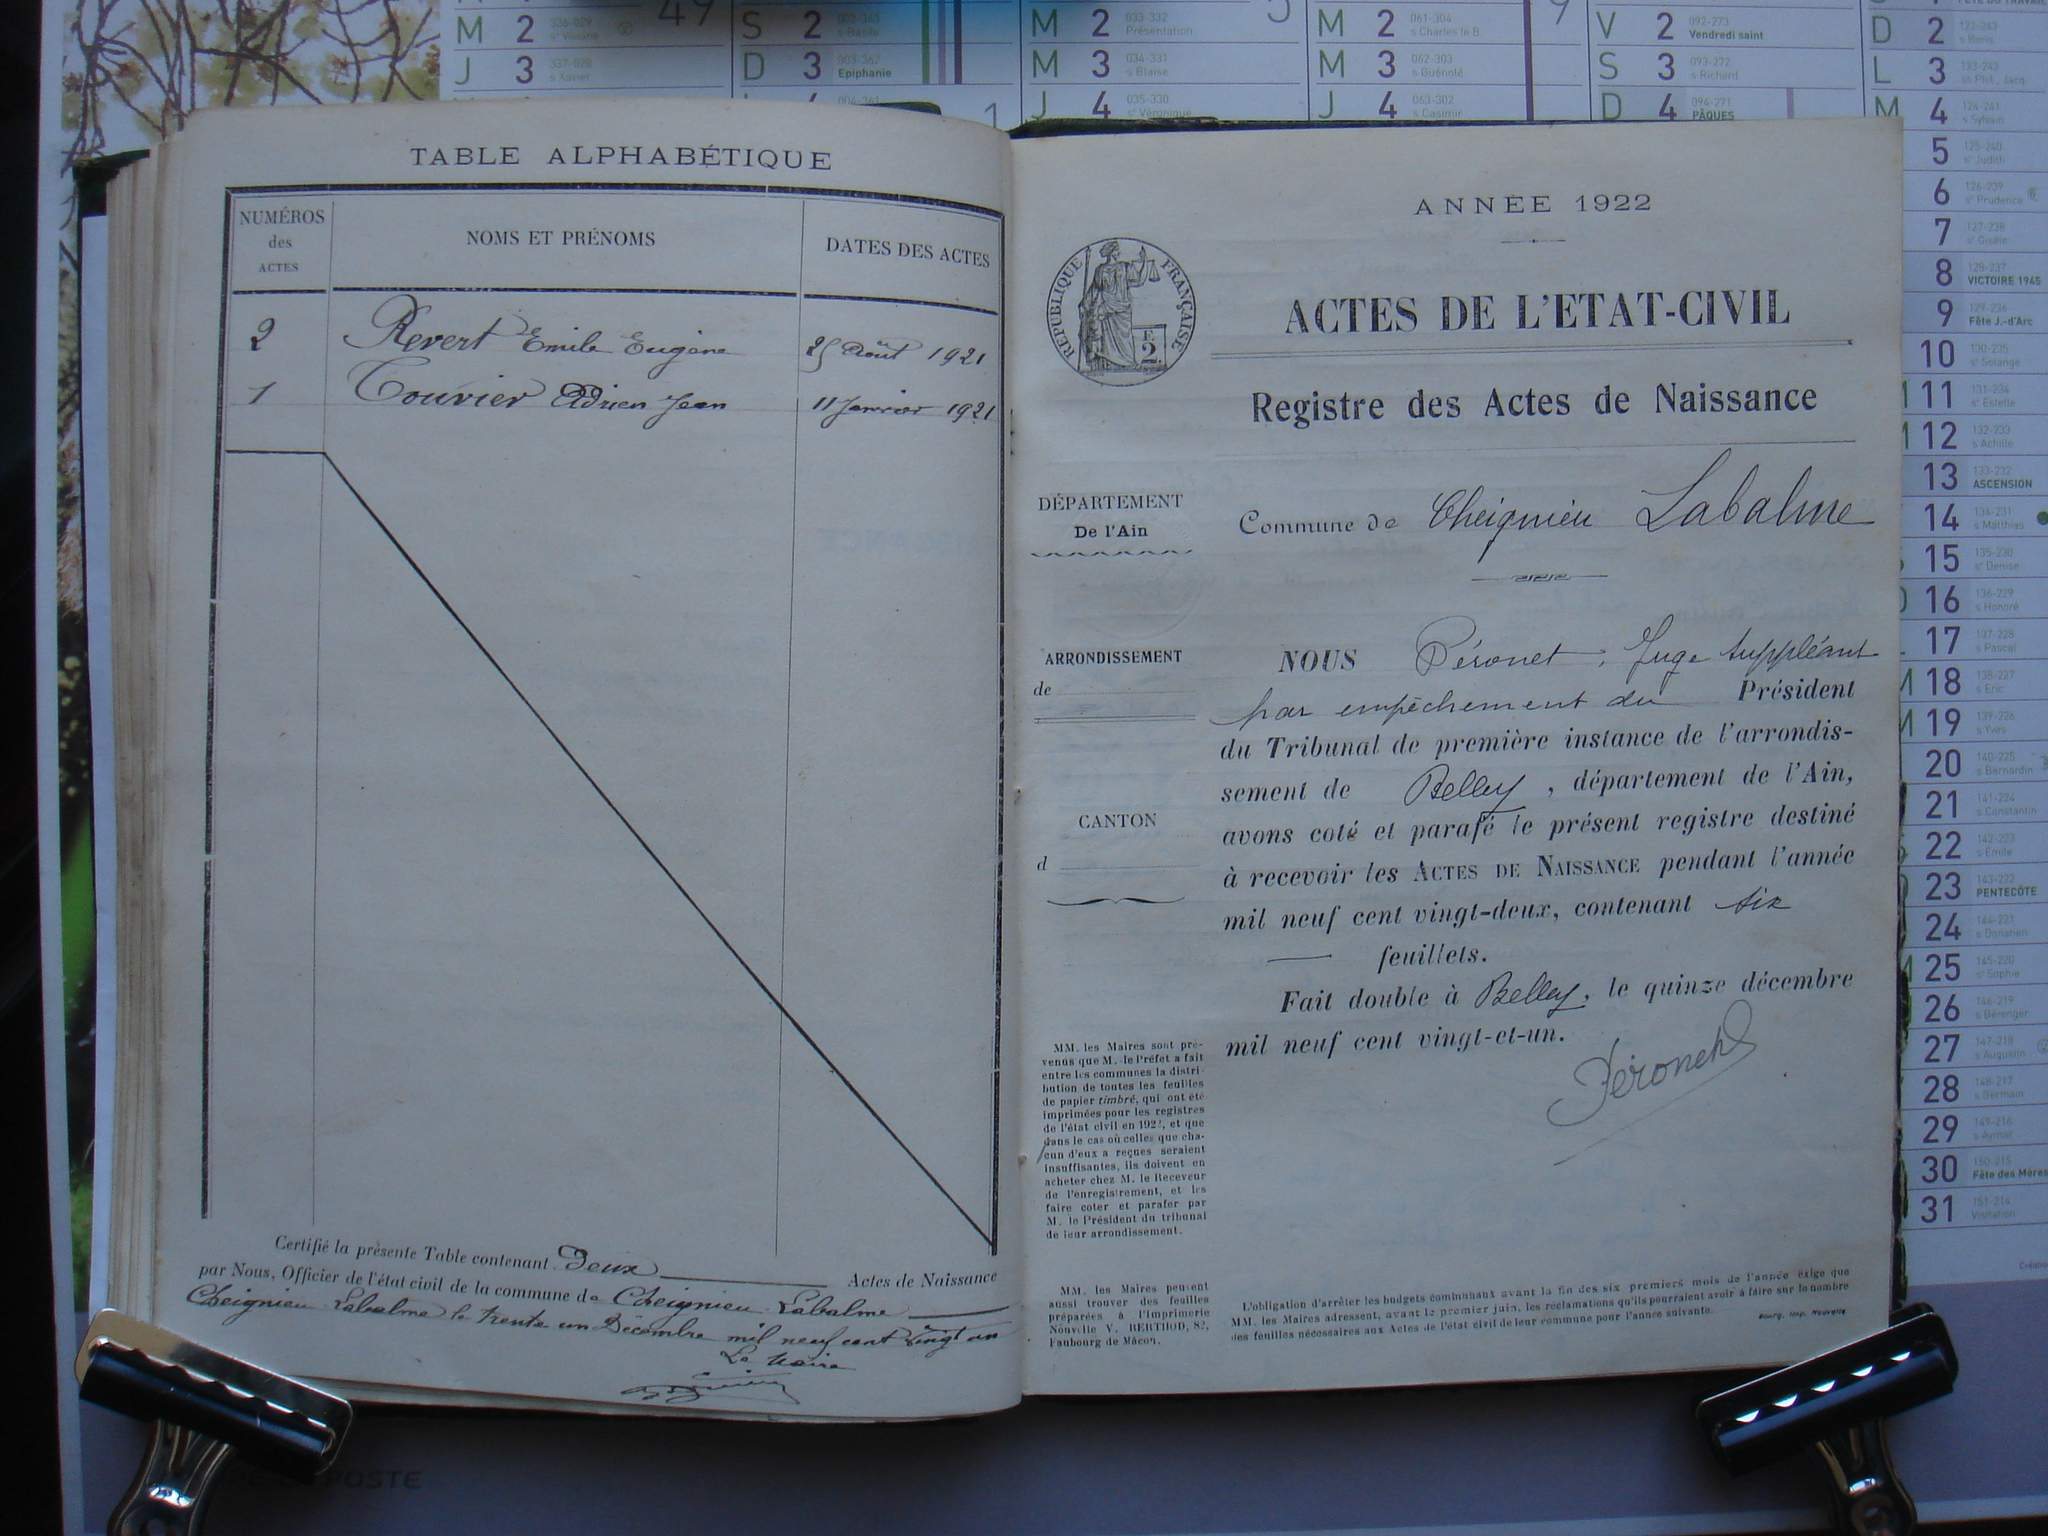 TABLE ALPHABÉTIQUE
NUMÉROS
des
ACTES
NOMS ET PRÉNOMS
DATES DES ACTES
2 Revert Emile Eugène 25 Août 1921
1 Touvier Adrien Jean 11 Janvier 1921
Certifié la présente Table contenant Deux Actes de Naissance
par Nous, Officier de l'état civil de la commune de Cheignieu Labalme
Cheignieu Labalme le trente un Décembre mil neuf cent vingt un
Le Maire
ANNÉE 1922
RÉPUBLIQUE FRANÇAISE
F
2
ACTES DE L'ETAT-CIVIL
Registre des Actes de Naissance
DÉPARTEMENT
De l'Ain
Commune de Cheignieu Labalme
ARRONDISSEMENT
de
CANTON
d
NOUS Péronet, Juge Suppléant
par empêchement du Président
du Tribunal de première instance de l'arrondis-
sement de Belley, département de l'Ain,
avons coté et parafé le présent registre destiné
à recevoir les ACTES DE NAISSANCE pendant l'année
mil neuf cent vingt-deux, contenant six
feuillets.
Fait double à Belley, le quinze décembre
mil neuf cent vingt-et-un.
Péronet
MM. les Maires sont pré-
venus que M. le Préfet a fait
entre les communes la distri-
bution de toutes les feuilles
de papier timbré, qui ont été
imprimées pour les registres
de l'état civil en 1922, et que
dans le cas où celles que cha-
cun d'eux a reçues seraient
insuffisantes, ils doivent en
acheter chez M. le Receveur
de l'enregistrement, et les
faire coter et parafer par
M. le Président du tribunal
de leur arrondissement.
MM. les Maires peuvent
aussi trouver des feuilles
préparées à l'Imprimerie
Nouvelle V. BERTHOD, 82,
Faubourg de Mâcon.
L'obligation d'arrêter les budgets communaux avant la fin des six premiers mois de l'année exige que
MM. les Maires adressent, avant le premier juin, les réclamations qu'ils pourraient avoir à faire sur le nombre
des feuilles nécessaires aux Actes de l'état civil de leur commune pour l'année suivante.
Bourg, Imp. Nouvelle
M 2
J 3
S 2
D 3 Epiphanie
M 2 Présentation
M 3 s Blaise
J 4 se Véronique
M 2 s Charles le B.
M 3 s Guénolé
J 4 s Casimir
V 2 Vendredi saint
S 3 s Richard
D 4 PÂQUES
D 2 s Boris
L 3 ss Phil., Jacq.
M 4 s Sylvain
5 se Judith
6 se Prudence
7 se Gisèle
8 VICTOIRE 1945
9 Fête J.-d'Arc
10 se Solange
11 se Estelle
12 s Achille
13 ASCENSION
14 s Matthias
15 se Denise
16 s Honoré
17 s Pascal
18 s Eric
19 s Yves
20 s Bernardin
21 s Constantin
22 s Emile
23 PENTECÔTE
24 s Donatien
25 se Sophie
26 s Bérenger
27 s Augustin
28 s Germain
29 s Aymar
30 Fête des Mères
31 Visitation
POSTE